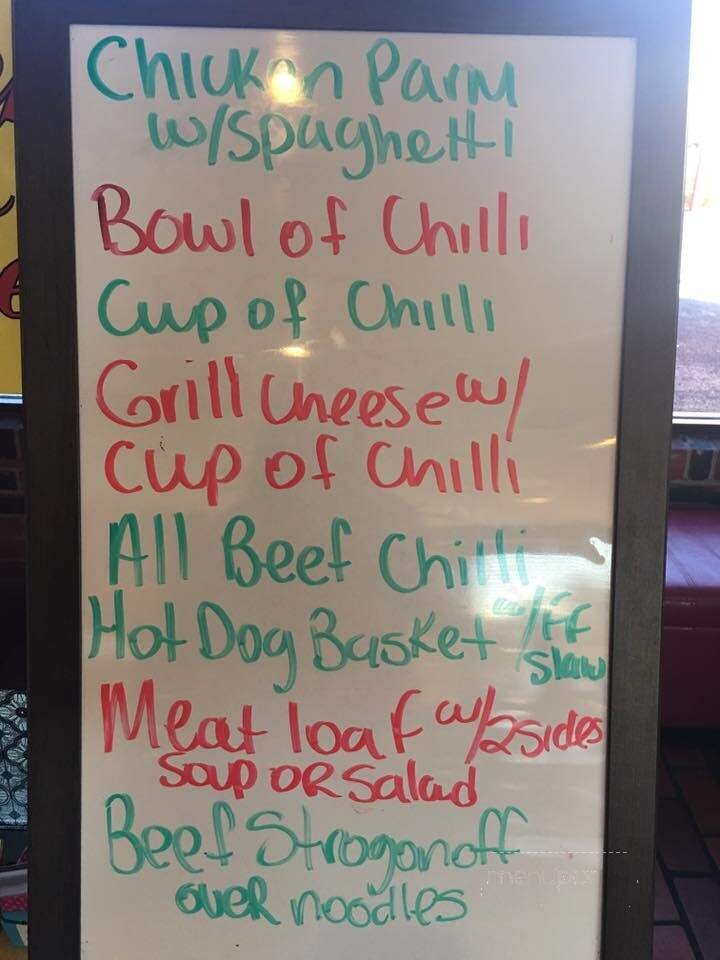 Chicken Parm
w/spaghetti
Bowl of Chilli
Cup of Chilli
Grill Cheese w/
Cup of Chilli
All Beef Chilli
Hot Dog Basket w/FF
Slaw
Meat loaf w/2sides
Soup OR Salad
Beef Strogonoff
over noodles